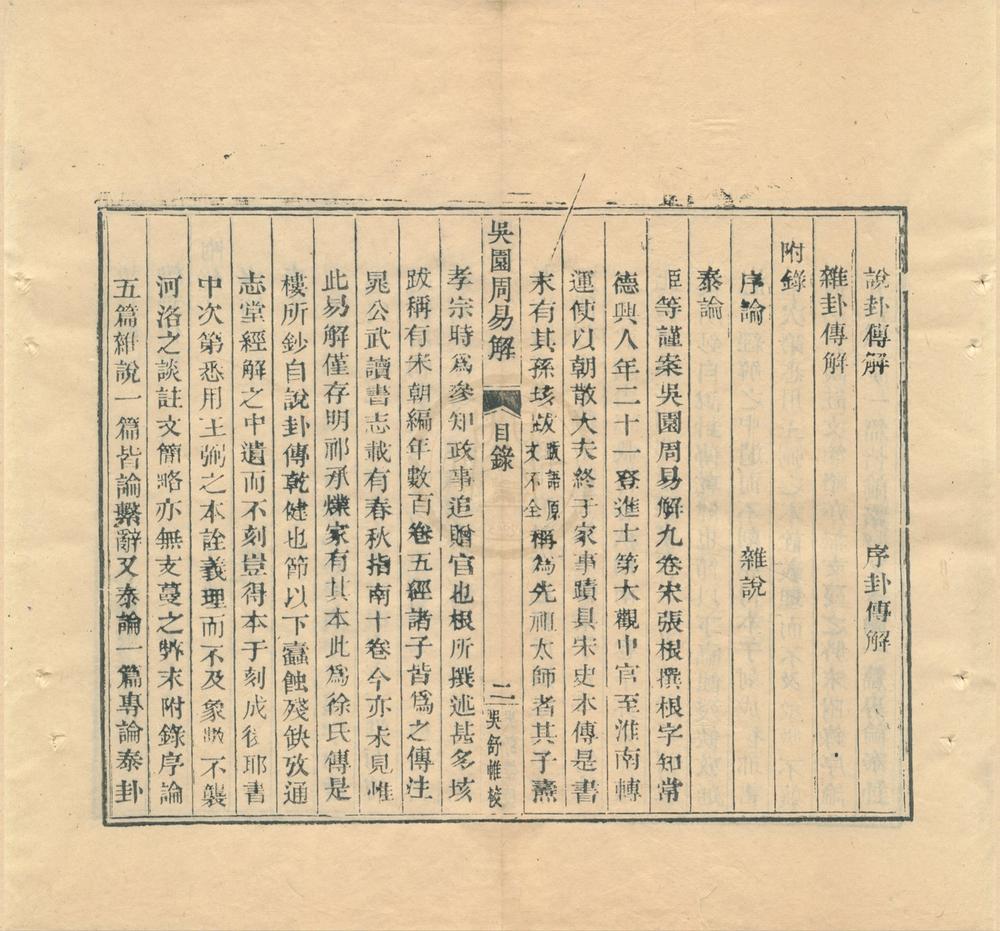 說卦傳解 序卦傳解
雜卦傳解
附錄
序論 雜說
泰論
臣等謹案吳園周易解九卷宋張根撰根字知常
德興人年二十一登進士第大觀中官至淮南轉
運使以朝散大夫終于家事蹟具宋史本傳是書
末有其孫垓跋跋語原文不全稱為先祖太師者其子燾
吳園周易解 目錄 二 吳舒帷校
孝宗時爲參知政事追贈官也根所撰述甚多垓
跋稱有宋朝編年數百卷五經諸子皆爲之傳注
晁公武讀書志載有春秋指南十卷今亦未見惟
此易解僅存明祁承㸁家有其本此爲徐氏傳是
樓所鈔自說卦傳乾健也節以下蠧蝕殘缺攷通
志堂經解之中遺而不刻豈得本于刻成後耶書
中次第悉用王弼之本詮義理而不及象數不襲
河洛之談註文簡略亦無支蔓之弊末附錄序論
五篇雜說一篇皆論繫辭又泰論一篇專論泰卦